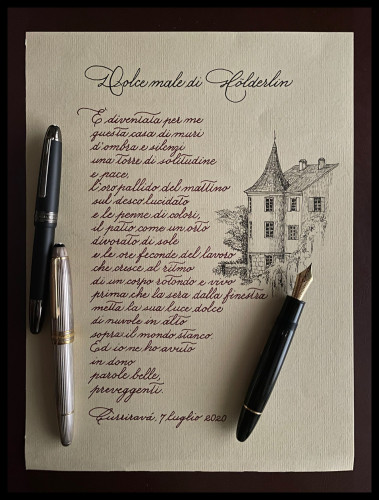 Dolce male di Hölderlin
È diventata per me
questa casa di muri
d'ombra e silenzi
una torre di solitudine
e pace,
l'oro pallido del mattino
sul desco lucidato
e le penne di colori,
il patio come un orto
divorato di sole
e le ore feconde del lavoro
che cresce al ritmo
di un corpo rotondo e vivo
prima che la sera dalla finestra
metta la sua luce dolce
di nuvole in alto
sopra il mondo stanco.
Ed io ne ho avuto
in dono
parole belle,
preveggenti.
7 luglio 2020